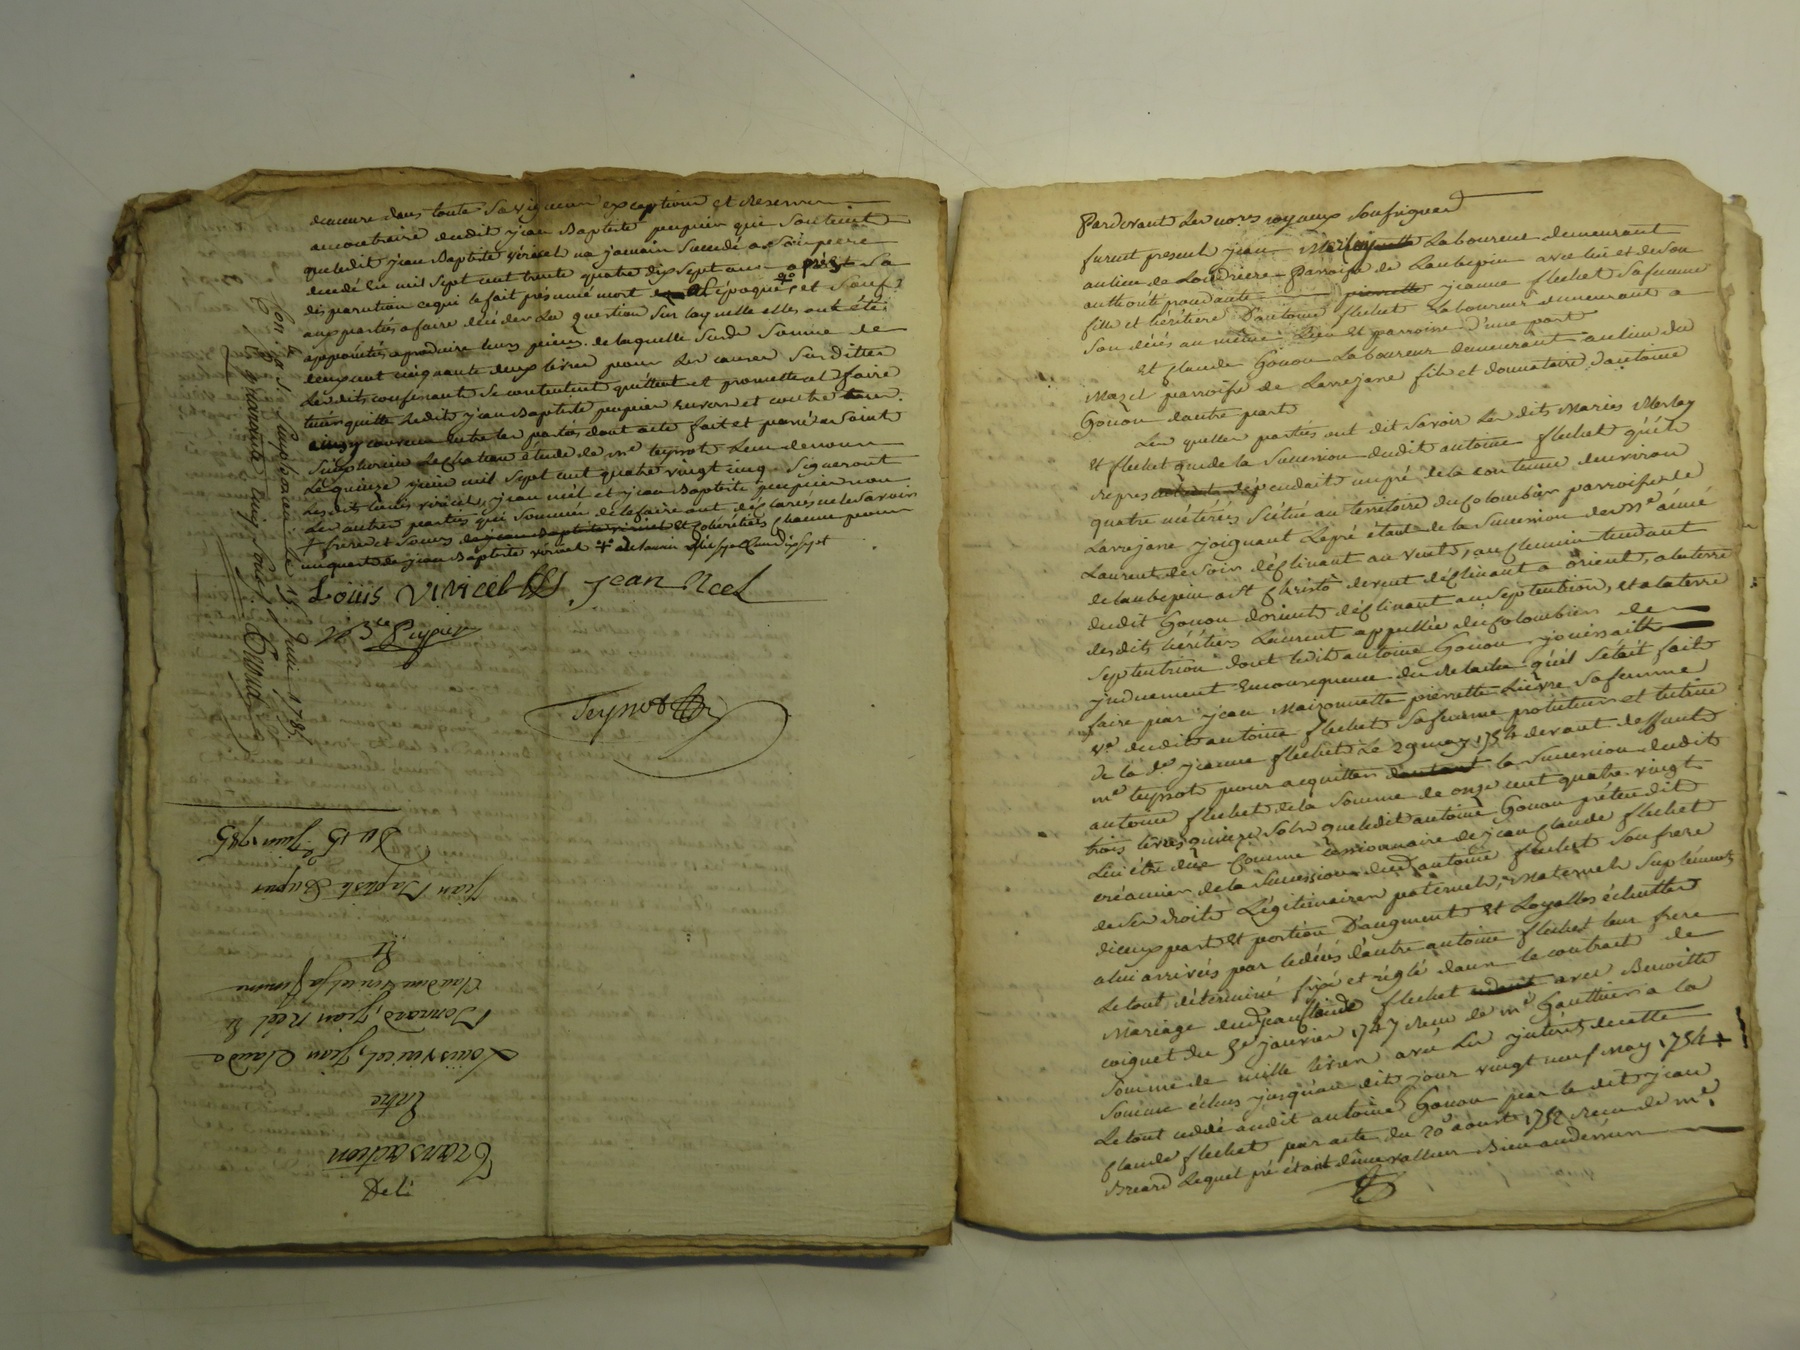 demeure dans toute sa vigueur exceptions et reserves
au contraire dudit jean Baptiste pupier qui soutient
que ledit jean Baptiste viricel na jamais succedé a son pere
decedé en mil sept cent trente quatre dix sept ans après sa
disparution ce qui le fait présumé mort epoque et sauf
aux parties a faire décider la question sur laquelle elles ont été
appointés a produire leurs pieces. de laquelle susd somme de
deux cent cinquante deux livres pour les causes susdittes
lesdits confessants se contentent quittent et promettent faire
tenir quitte ledit jean Baptiste pupier envers et contre tous.
convenu entre les parties dont acte fait et passé a Saint
Simphorien le chateau étude de me teyssot l'un de nous
le quinze juin mil sept cent quatre vingt cinq. signeront
lesdits louis viricel, jean néel et jean Baptiste pupier non
les autres parties qui sommées de le faire ont déclarés ne le savoir
+ freres et soeurs et cohéritiers chacun pour
un quart de jean Baptiste viricel
Louis Viricel jean neel
J B te Pupier
Teyssot
Con. le à St Simphorien le 15 Juin 1785.
Du 15 e Juin 1785
Jean Baptiste Pupier
Et
Claudine Viricel sa femme
Bonnard, Jean Néel &
Louis viricel, Jean Claude
Entre
Transaction
Del.
Pardevant les nores royaux soussignés
furent present jean Merley laboureur demeurant
au lieu de parroisse de Laubepin avec lui et de son
authorité procedante jeanne flechet sa femme
fille et héritiere d'antoine flechet laboureur demeurant a
son décès au même lieu et parroisse d'une part
Et claude Gonon laboureur demeurant au lieu du
Mazel parroisse de Larrajasse fils et donnataire d'antoine
Gonon d'autre part
Les quelles parties ont dit savoir les dits Mariés Merley
et flechet que de la succession dudit antoine flechet qu'ils
dépendait un pré de la contenue d'environ
quatre méteres situé au territoire du Colombier parroisse de
Larrajasse joignant le pré étant de la succession de me aimé
Laurent de soir déclinant au vent, au chemin tendant
de laubepin a st christo de vent déclinant a orient, a la terre
dudit Gonon d'orient déclinant au septentrion, et a la terre
desdits héritiers Laurent appellée du Colombier de
septentrion dont ledit antoine Gonon jouissait
jnduement en consequence du relachu qu'il s'etait fait
faire par jean Maisonnette pierrette Lievre sa femme
ve dudit antoine flechet sa femme protuteur et tutrice
de la de jeanne flechet le 29 may 1754 devant deffunt
me teyssot pour acquitter la succession dudit
antoine flechet de la somme de onze cent quatre vingt
trois livres quinze sols que ledit antoine Gonon prétendit
lui être düe comme cessionnaire de jean claude flechet
créancier de la succession dud antoine flechet son frere
de ses droits légitimaires paternels, maternels supléments
d'iceux part et portion d'augment et loyalles échuttes
a lui arrivés par le décès d'autre antoine flechet leur frere
le tout déterminé fixé et réglé dans le contract de
Mariage dud jean claude flechet avec Benoitte
coignet du 5e janvier 1747 recu de me Gauthier a la
somme de mille livres avec les jntérêts de cette
somme échus jusqu'au dit jour vingt neuf May 1754 +
le tout cédé audit antoine Gonon par le dit jean
claude flechet par acte du 20 aoust 1752 recu de me
Breard lequel pré étant d'une valleur Bien au dessus